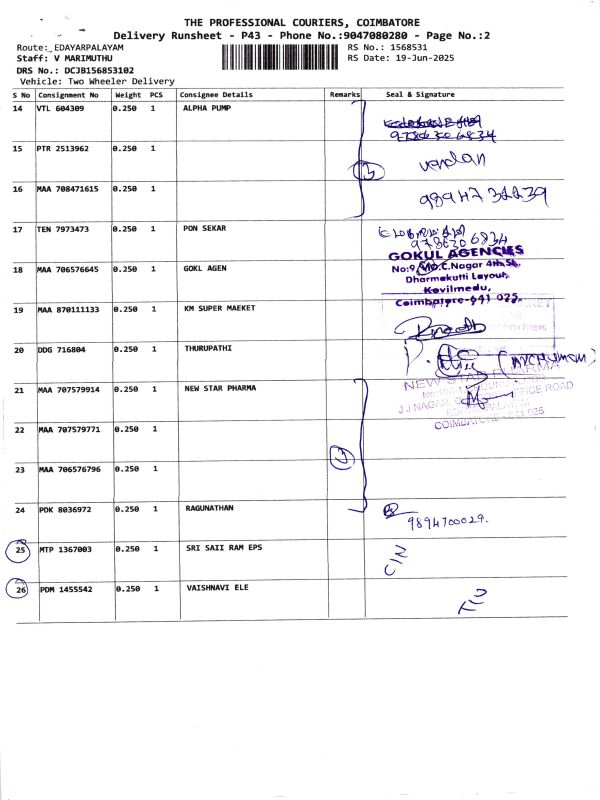 THE PROFESSIONAL COURIERS, COIMBATORE
Delivery Runsheet - P43 - Phone No.:9047080280 - Page No.:2
Route: EDAYARPALAYAM
RS No.: 1568531
Staff: V MARIMUTHU
RS Date: 19-Jun-2025
DRS No.: DCJB156853102
Vehicle: Two Wheeler Delivery
S No Consignment No Weight PCS Consignee Details Remarks Seal & Signature
14 VTL 604309 0.250 1 ALPHA PUMP
9786306834
15 PTR 2513962 0.250 1
16 MAA 708471615 0.250 1
17 TEN 7973473 0.250 1 PON SEKAR
9786306834
GOKUL AGENCIES
18 MAA 706576645 0.250 1 GOKL AGEN
No:9, M.G.C.Nagar 4th St,
Dharmakutti Layout,
Kovilmedu,
Coimbatore-641 025.
19 MAA 870111133 0.250 1 KM SUPER MAEKET
20 DDG 716804 0.250 1 THURUPATHI
21 MAA 707579914 0.250 1 NEW STAR PHARMA
NEW STAR PHARMA
J J NAGAR
COIMBATORE
22 MAA 707579771 0.250 1
23 MAA 706576796 0.250 1
24 PDK 8036972 0.250 1 RAGUNATHAN
9894700029.
25 MTP 1367003 0.250 1 SRI SAII RAM EPS
26 PDM 1455542 0.250 1 VAISHNAVI ELE